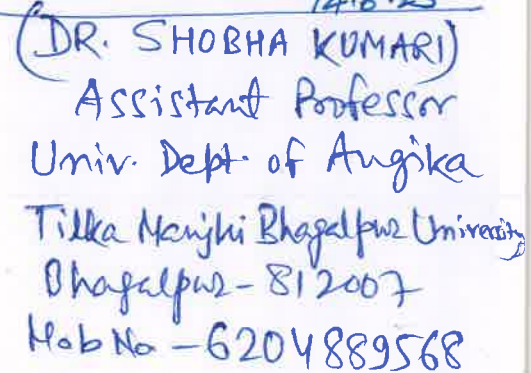 14.6.25
(DR. SHOBHA KUMARI)
Assistant Professor
Univ. Dept. of Angika
Tilka Manjhi Bhagalpur University
Bhagalpur - 812007
Mob No - 6204889568